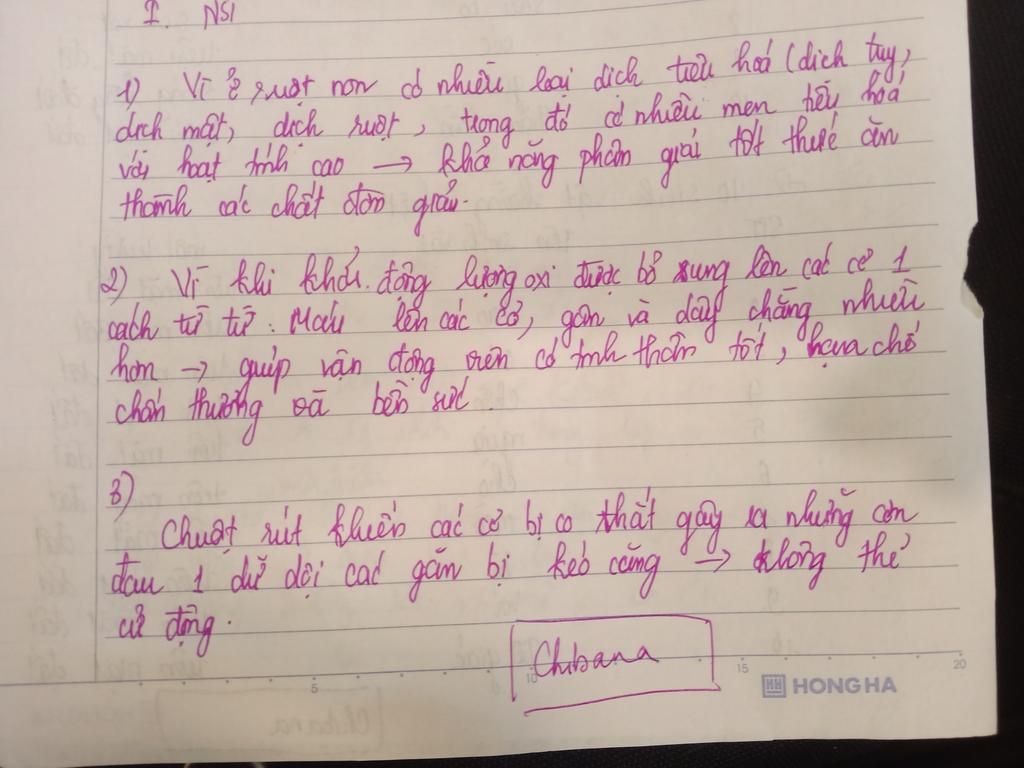 I. NSI
1) Vì ở ruột non có nhiều loại dịch tiêu hoá (dịch tụy,
dịch mật, dịch ruột, trong đó có nhiều men tiêu hoá
với hoạt tính cao → khả năng phân giải tốt thức ăn
thành các chất đơn giản.
2) Vì khi khởi động lượng oxi được bổ sung lên các cơ 1
cách từ từ. Máu lên các cơ, gân và dây chằng nhiều
hơn → giúp vận động viên có tinh thần tốt, hạn chế
chấn thương và bền sức.
3)
Chuột rút khiến các cơ bị co thắt gây ra những cơn
đau 1 dữ dội các gân bị kéo căng → không thể
cử động.
Chibana
5 10 15 20
HONG HA